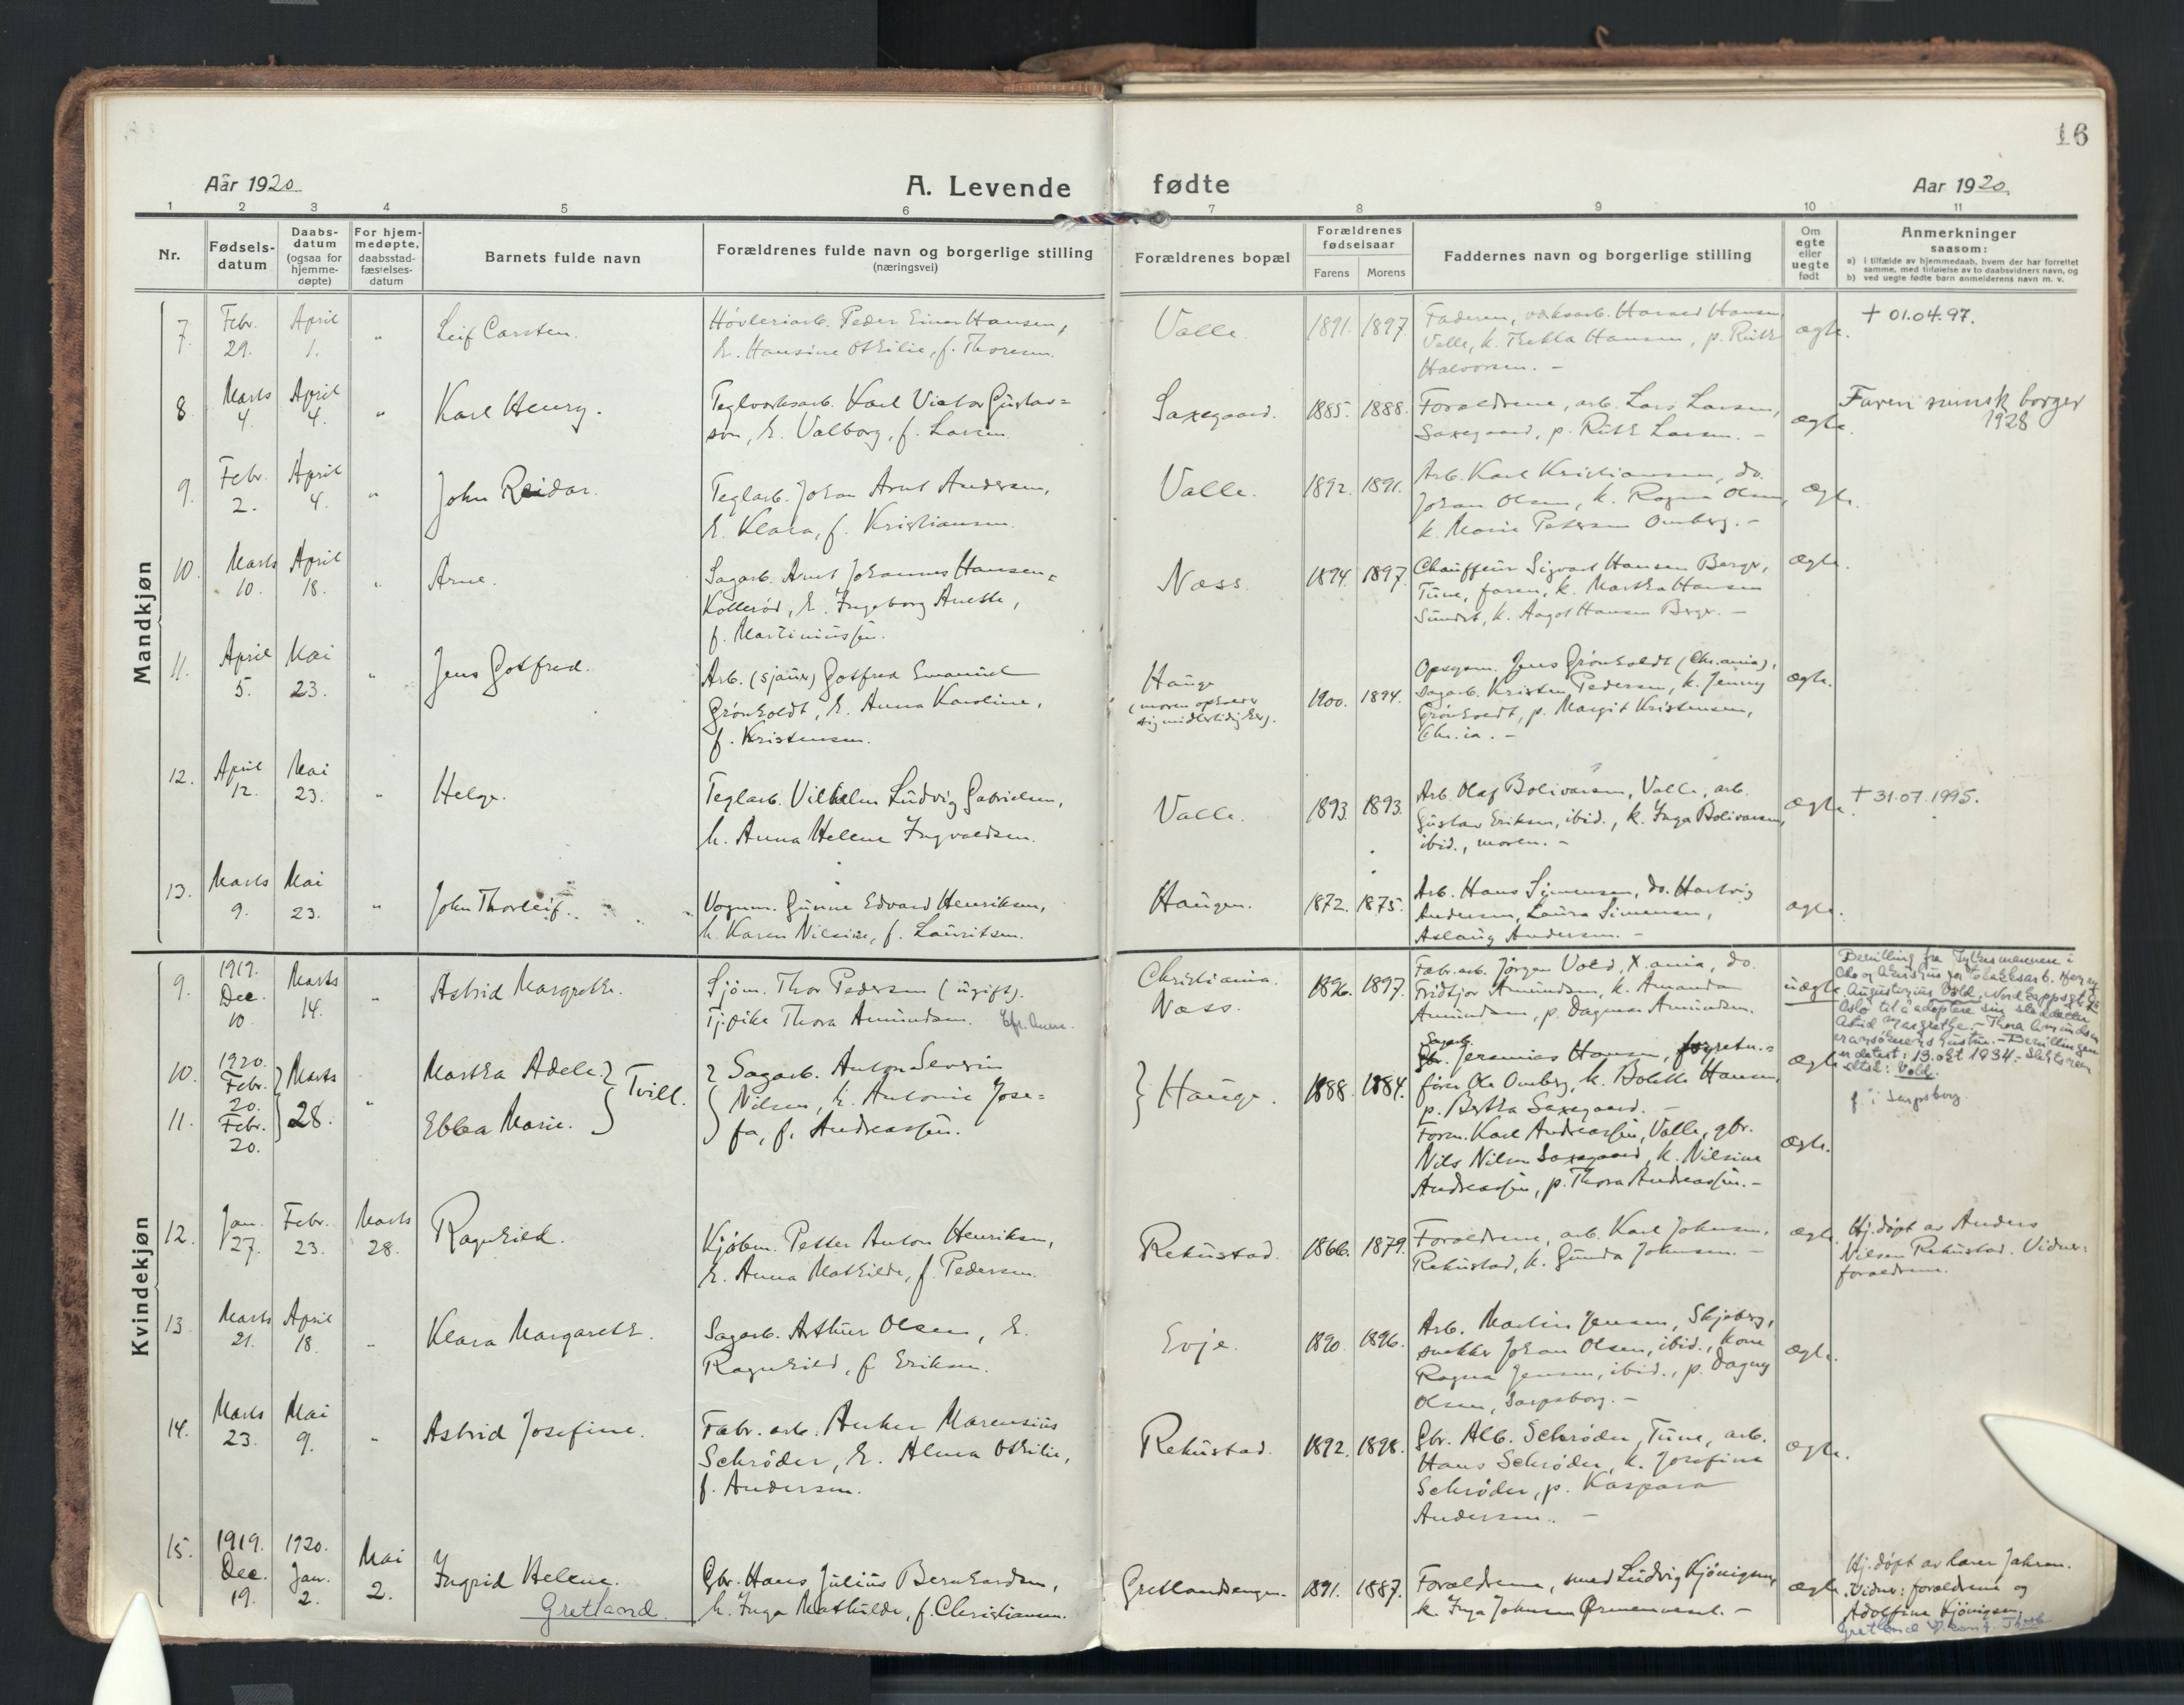 16
Aar 1920.
A. Levende
fødte
Aar 1920.
1 2 3 4 5 6 7 8 9 10 11
Nr.
Fødsels-
datum
Daabs-
datum
(ogsaa for
hjemme-
døpte)
For hjem-
medøpte,
daabsstad-
fæstelses-
datum
Barnets fulde navn
Forældrenes fulde navn og borgerlige stilling
(næringsvei)
Forældrenes bopæl
Forældrenes
fødselsaar
Farens
Morens
Faddernes navn og borgerlige stilling
Om
egte
eller
uegte
født
Anmerkninger
saasom:
a) i tilfælde av hjemmedaab, hvem der har forrettet
samme, med tilføielse av to daabsvidners navn, og
b) ved uegte fødte barn anmelderens navn m. v.
Mandkjøn
7. Febr. 29. April 1. " Leif Carsten.
Høvleriarb. Peder Einar Hansen,
h. Hansine Othilie, f. Thoresen.
Valle. 1891. 1897.
Faderen, Harald Hansen,
Valle, k. Thekla Hansen, p. Ruth
Halvorsen. -
ægte.
+ 01.04.97.
8. Marts 4. April 4. " Karl Henry.
Teglverksarb. Karl Victor Gustav=
son, h. Valborg, f. Larsen.
Saxegaard. 1885. 1888.
Forældrene, arb. Lars Larsen,
Saxegaard, p. Ruth Larsen. -
ægte.
Faren svensk borger
1928
9. Febr. 2. April 4. " John Reidar.
Teglarb. Johan Arnt Andersen,
h. Klara, f. Kristiansen.
Valle. 1892. 1891.
Arb. Karl Kristiansen, do.
Johan Olsen, k. Ragna Olsen,
k. Marie Petersen Omberg. -
ægte.
10. Marts 10. April 18. " Arne.
Sagarb. Arnt Johannes Hansen=
Kollerød, h. Ingeborg Anette,
f. Martiniussen.
Næss. 1894. 1897.
Chauffeur Sigvart Hansen Berge,
Tune, faren, k. Martha Hansen
Sundet, k. Aagot Hansen Berge. -
ægte.
11. April 5. Mai 23. " Jens Gotfred.
Arb. (sjauer) Gotfred Emanuel
Grönholdt, h. Anna Karoline,
f. Kristensen.
Hauge
(moren opholder
sig midlertidig her).
1900. 1894.
Opsynsm. Jens Grönholdt (Chr.ania),
sagarb. Kristen Pedersen, k. Jenny
Grönholdt, p. Margit Kristensen,
Chr.ia. -
ægte.
12. April 12. Mai 23. " Helge.
Teglarb. Vilhelm Ludvig Gabrielsen,
h. Anna Helene Ingvaldsen.
Valle. 1893. 1893.
Arb. Olaf Bolivarsen, Valle, arb.
Gustav Eriksen, ibid., k. Inga Bolivarsen,
ibid., moren. -
ægte.
+ 31.07.1995.
13. Marts 9. Mai 23. " John Thorleif.
Vognm. Gunne Edvard Henriksen,
h. Karen Nilsine, f. Lauritsen.
Haugen. 1872. 1875.
Arb. Hans Simensen, do. Hartvig
Andersen, Laura Simensen,
Aslaug Andersen. -
ægte.
Kvindekjøn
9. 1919. Dec. 10 Marts 14. " Astrid Margrethe.
Sjøm. Thor Pedersen (ugift).
Tj.pike Thora Amundsen. Cfr. Anm.
Christiania.
Næss.
1896. 1897.
Fabr.arb. Jørgen Vold, X.ania, do.
Fridtjof Amundsen, k. Amanda
Amundsen, p. Dagmar Amundsen.
uægte
Bevilling fra Fylkesmannen i
Oslo og Akershus for
Augustinius Vold,
Oslo til å adoptere sin steddatter
Astrid Margrethe. - Thora Amundsen
er ansøkerens hustru. - Bevillingen
er datert: 13. okt 1934. - Slekts
Vold.
f. i Sarpsborg.
10. 1920. Febr. 20. Marts 28. " Martha Adele. } Tvill.
11. Febr. 20. Ebba Marie.
Sagarb. Anton Severin
Nilsen, h. Antonie Jose=
fa, f. Andreassen.
Hauge. 1888. 1884.
Sagarb. Jeremias Hansen, forretn.=
fører Ole Omberg, k. Bolette Hansen,
p. Bertha Saxegaard. -
ægte
Form. Karl Andreassen, Valle, gbr.
Nils Nilsen Saxegaard, k. Nilsine
Andreassen, p. Thora Andreassen. -
ægte.
12. Jan. 27. Febr. 23. Marts 28. Ragnhild.
Kjøbm. Petter Anton Henriksen,
h. Anna Mathilde, f. Pedersen.
Rekustad. 1866. 1879.
Forældrene, arb. Karl Johnsen,
Rekustad, k. Gunda Johnsen. -
ægte.
Hj.døpt av Anders
Nilsen Rekustad. Vidner:
forældrene.
13. Marts 21. April 18. " Klara Margareth.
Sagarb. Arthur Olsen, h.
Ragnhild, f. Eriksen.
Evje. 1890. 1896.
Arb. Martin Jensen, Skjeberg,
snekker Johan Olsen, ibid., kone
Ragna Jensen, ibid., p. Dagny
Olsen, Sarpsborg. -
ægte.
14. Marts 23. Mai 9. " Astrid Josefine.
Fabr. arb. Anker Marensius
Schrøder, h. Alma Othilie,
f. Andersen.
Rekustad. 1892. 1898.
Gbr. Alb. Schrøder, Tune, arb.
Hans Schrøder, k. Josefine
Schrøder, p. Kaspara
Andersen. -
ægte.
15. 1919. Dec. 19. 1920. Jan. 2. Mai 2. Ingrid Helene.
Gretland.
Gbr. Hans Julius Bernhardsen,
h. Inga Mathilde, f. Christiansen.
Gretlandsengen. 1891. 1887.
Forældrene, smed Ludvig Kjønigsen,
k. Inga Johnsen -
ægte.
Hj.døpt av lærer Jahren.
Vidner: forældrene og
Adolfine Kjønigsen.
Gretland